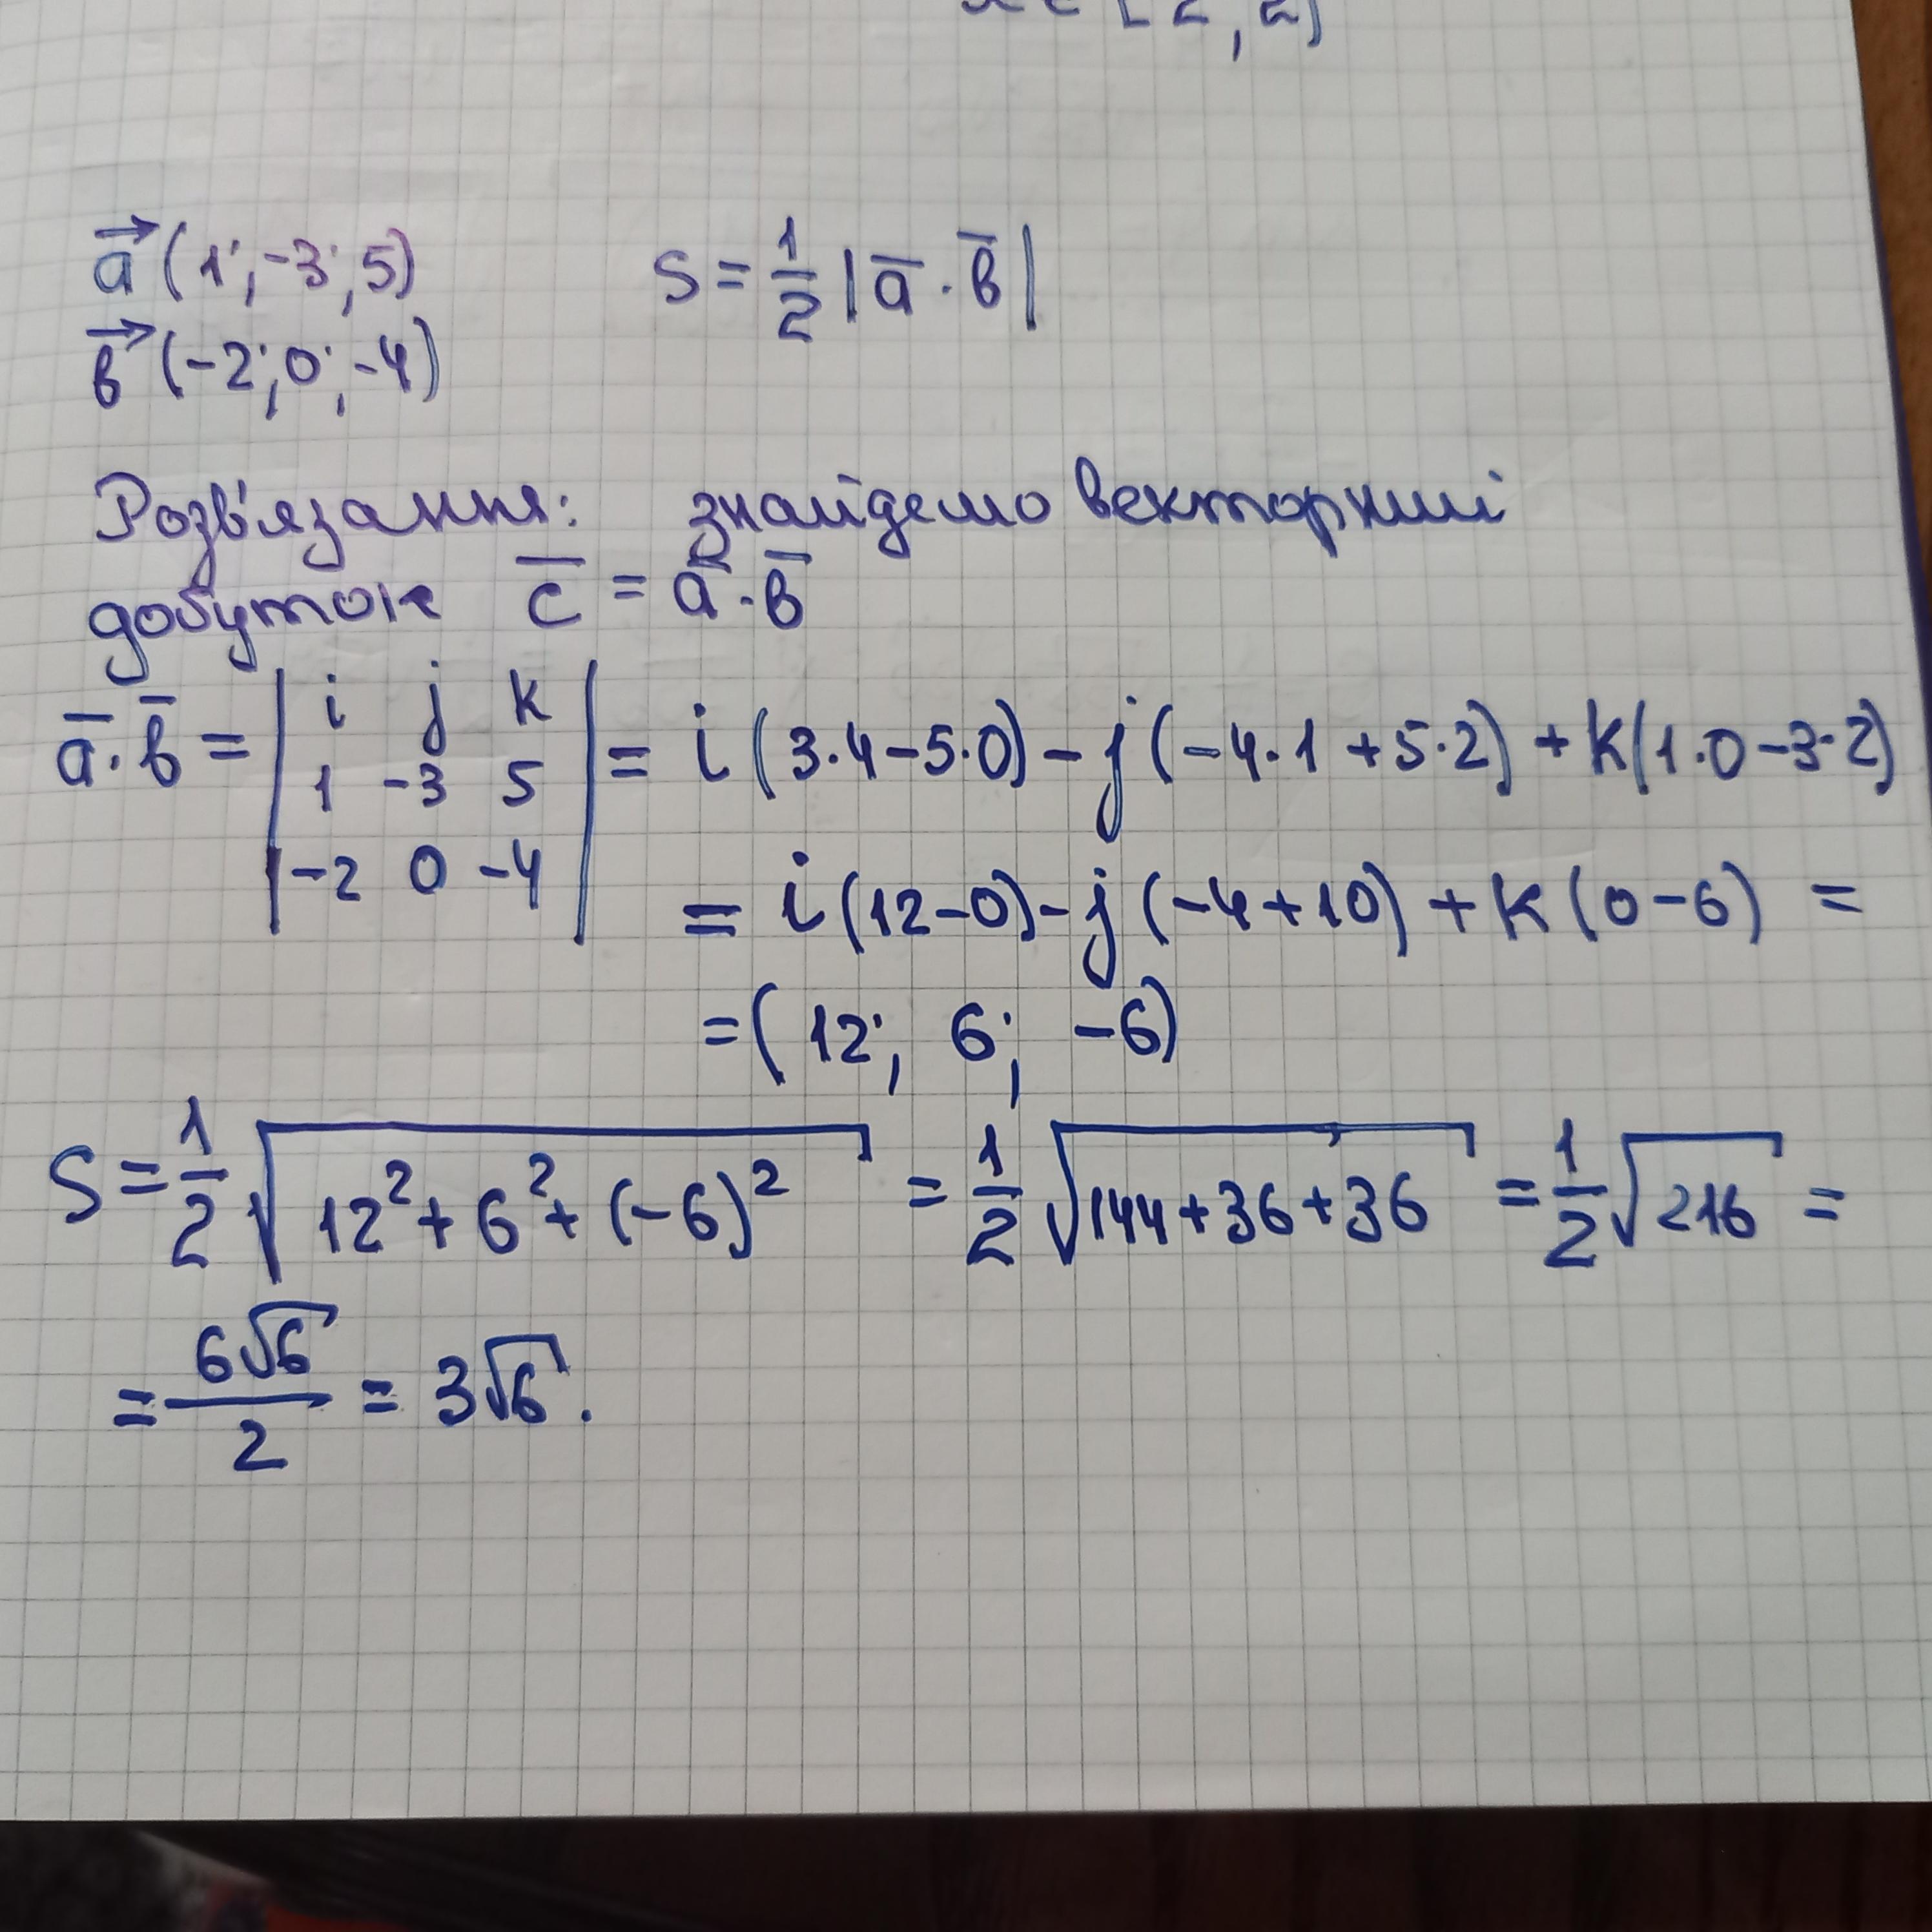 a⃗ (1; -3; 5)    S = 1/2 |a̅ · b̅|
b⃗ (-2; 0; -4)
Розв'язання: знайдемо векторний
добуток c̅ = a̅ · b̅
a̅ · b̅ = | i j k | = i (3·4 - 5·0) - j (-4·1 + 5·2) + k (1·0 - 3·2)
1 -3 5
-2 0 -4
= i (12 - 0) - j (-4 + 10) + k (0 - 6) =
= (12; 6; -6)
S = 1/2 √(12² + 6² + (-6)²) = 1/2 √(144 + 36 + 36) = 1/2 √216 =
= 6√6/2 = 3√6.